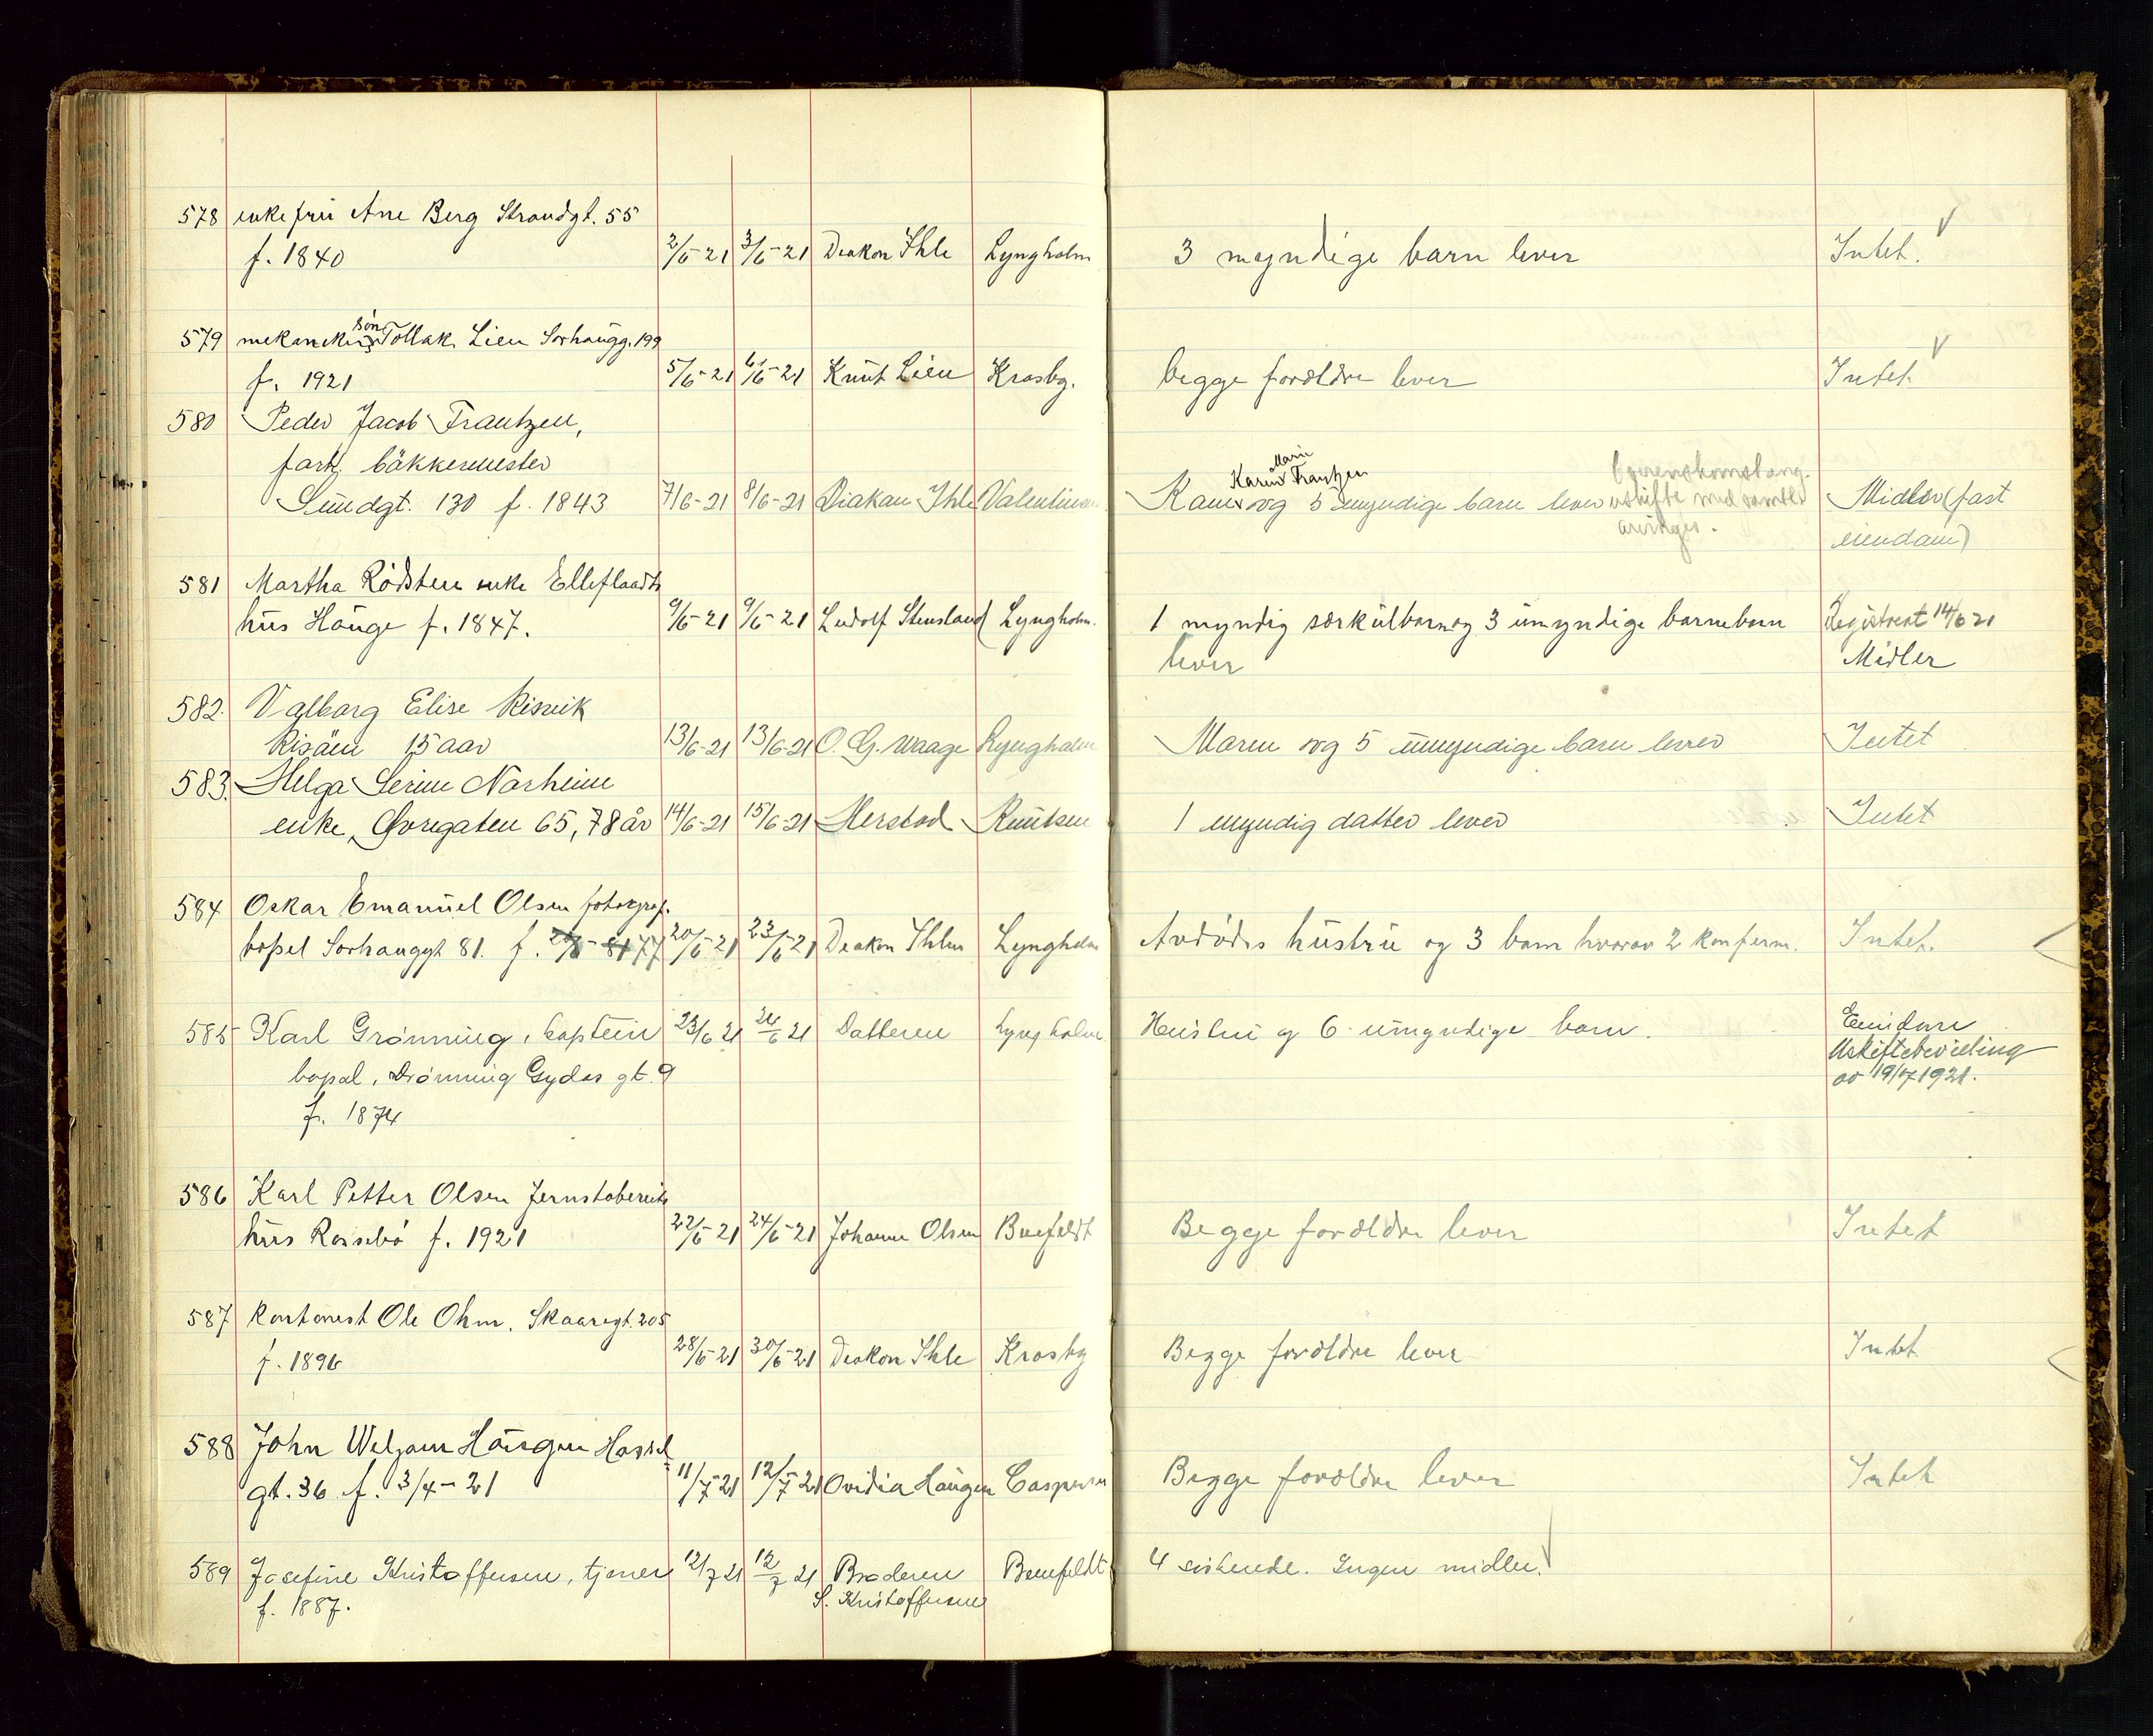 578 enkefru Ane Berg Strandgt. 55
f. 1840 2/6-21 3/6-21 Diakon Ihle Lyngholm 3 myndige barn lever Intet.
579 mekanikers søn Tollak Lien Sørhaugg. 199
f. 1921 5/6-21 6/6-21 Knut Lien Krosby. begge forældre lever Intet.
580 Peder Jacob Frantzen,
førh. bøkkermester
Sundgt. 130 f. 1843 7/6-21 8/6-21 Diakon Ihle Valentinsen Karen Marie Frantzen og 5 myndige barn lever Midler (fast
eiendom)
581 Martha Rødsten enke Elleflaadts
hus Hauge f. 1847. 9/6-21 9/6-21 Ludolf Stensland Lyngholm. 1 myndig særkulbarn og 3 umyndige barnebarn Registrert 14/6 21
lever Midler
582. Valborg Elise Risvik
Risøen 15 aar 13/6-21 13/6-21 O. G. Waage Lyngholm Moren og 5 umyndige barn lever Intet
583. Helga Serine Norheim
enke, Øvregaten 65, 78 år 14/6-21 15/6-21 Herstad Knutsen 1 myndig datter lever Intet
584 Oskar Emanuel Olsen fotograf.
bopel Sørhauggt 81. f. 77 20/6-21 23/6-21 Diakon Ihle Lyngholm Avdødes hustru og 3 barn hvorav 2 konferm. Intet.
585 Karl Grønning, kaptein 23/6 21 24/6 21 Datteren Lyngholm Hustru og 6 umyndige barn. Eiendom
bopæl, Dronning Gydas gt. 9 Uskiftebevilling
f. 1874 av 19/7 1921.
586 Karl Petter Olsen Jernstøberiets
hus Rossebø f. 1921 22/6-21 24/6-21 Johanne Olsen Buefeldt Begge forældre lever Intet
587 Kontorist Ole Ohm. Skaaregt. 205
f. 1896 28/6-21 30/6-21 Diakon Ihle Krosby Begge forældre lever Intet
588 John Haugen Hassel
gt. 36 f. 3/4-21 11/7-21 12/7-21 Ovidia Haugen Caspersen Begge forældre lever Intet
589 Josefine Kristoffersen, tjener 12/7 21 12/7 21 Broderen Buefeldt 4 søskende. Ingen midler.
f. 1887. S. Kristoffersen